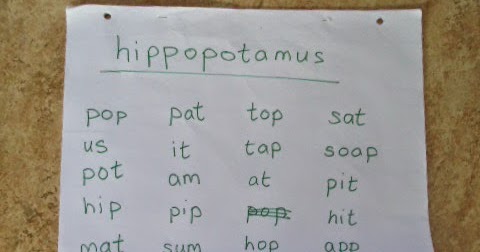 hippopotamus
pop pat top sat
us it tap soap
pot am at pit
hip pip pop hit
mat sum hop app